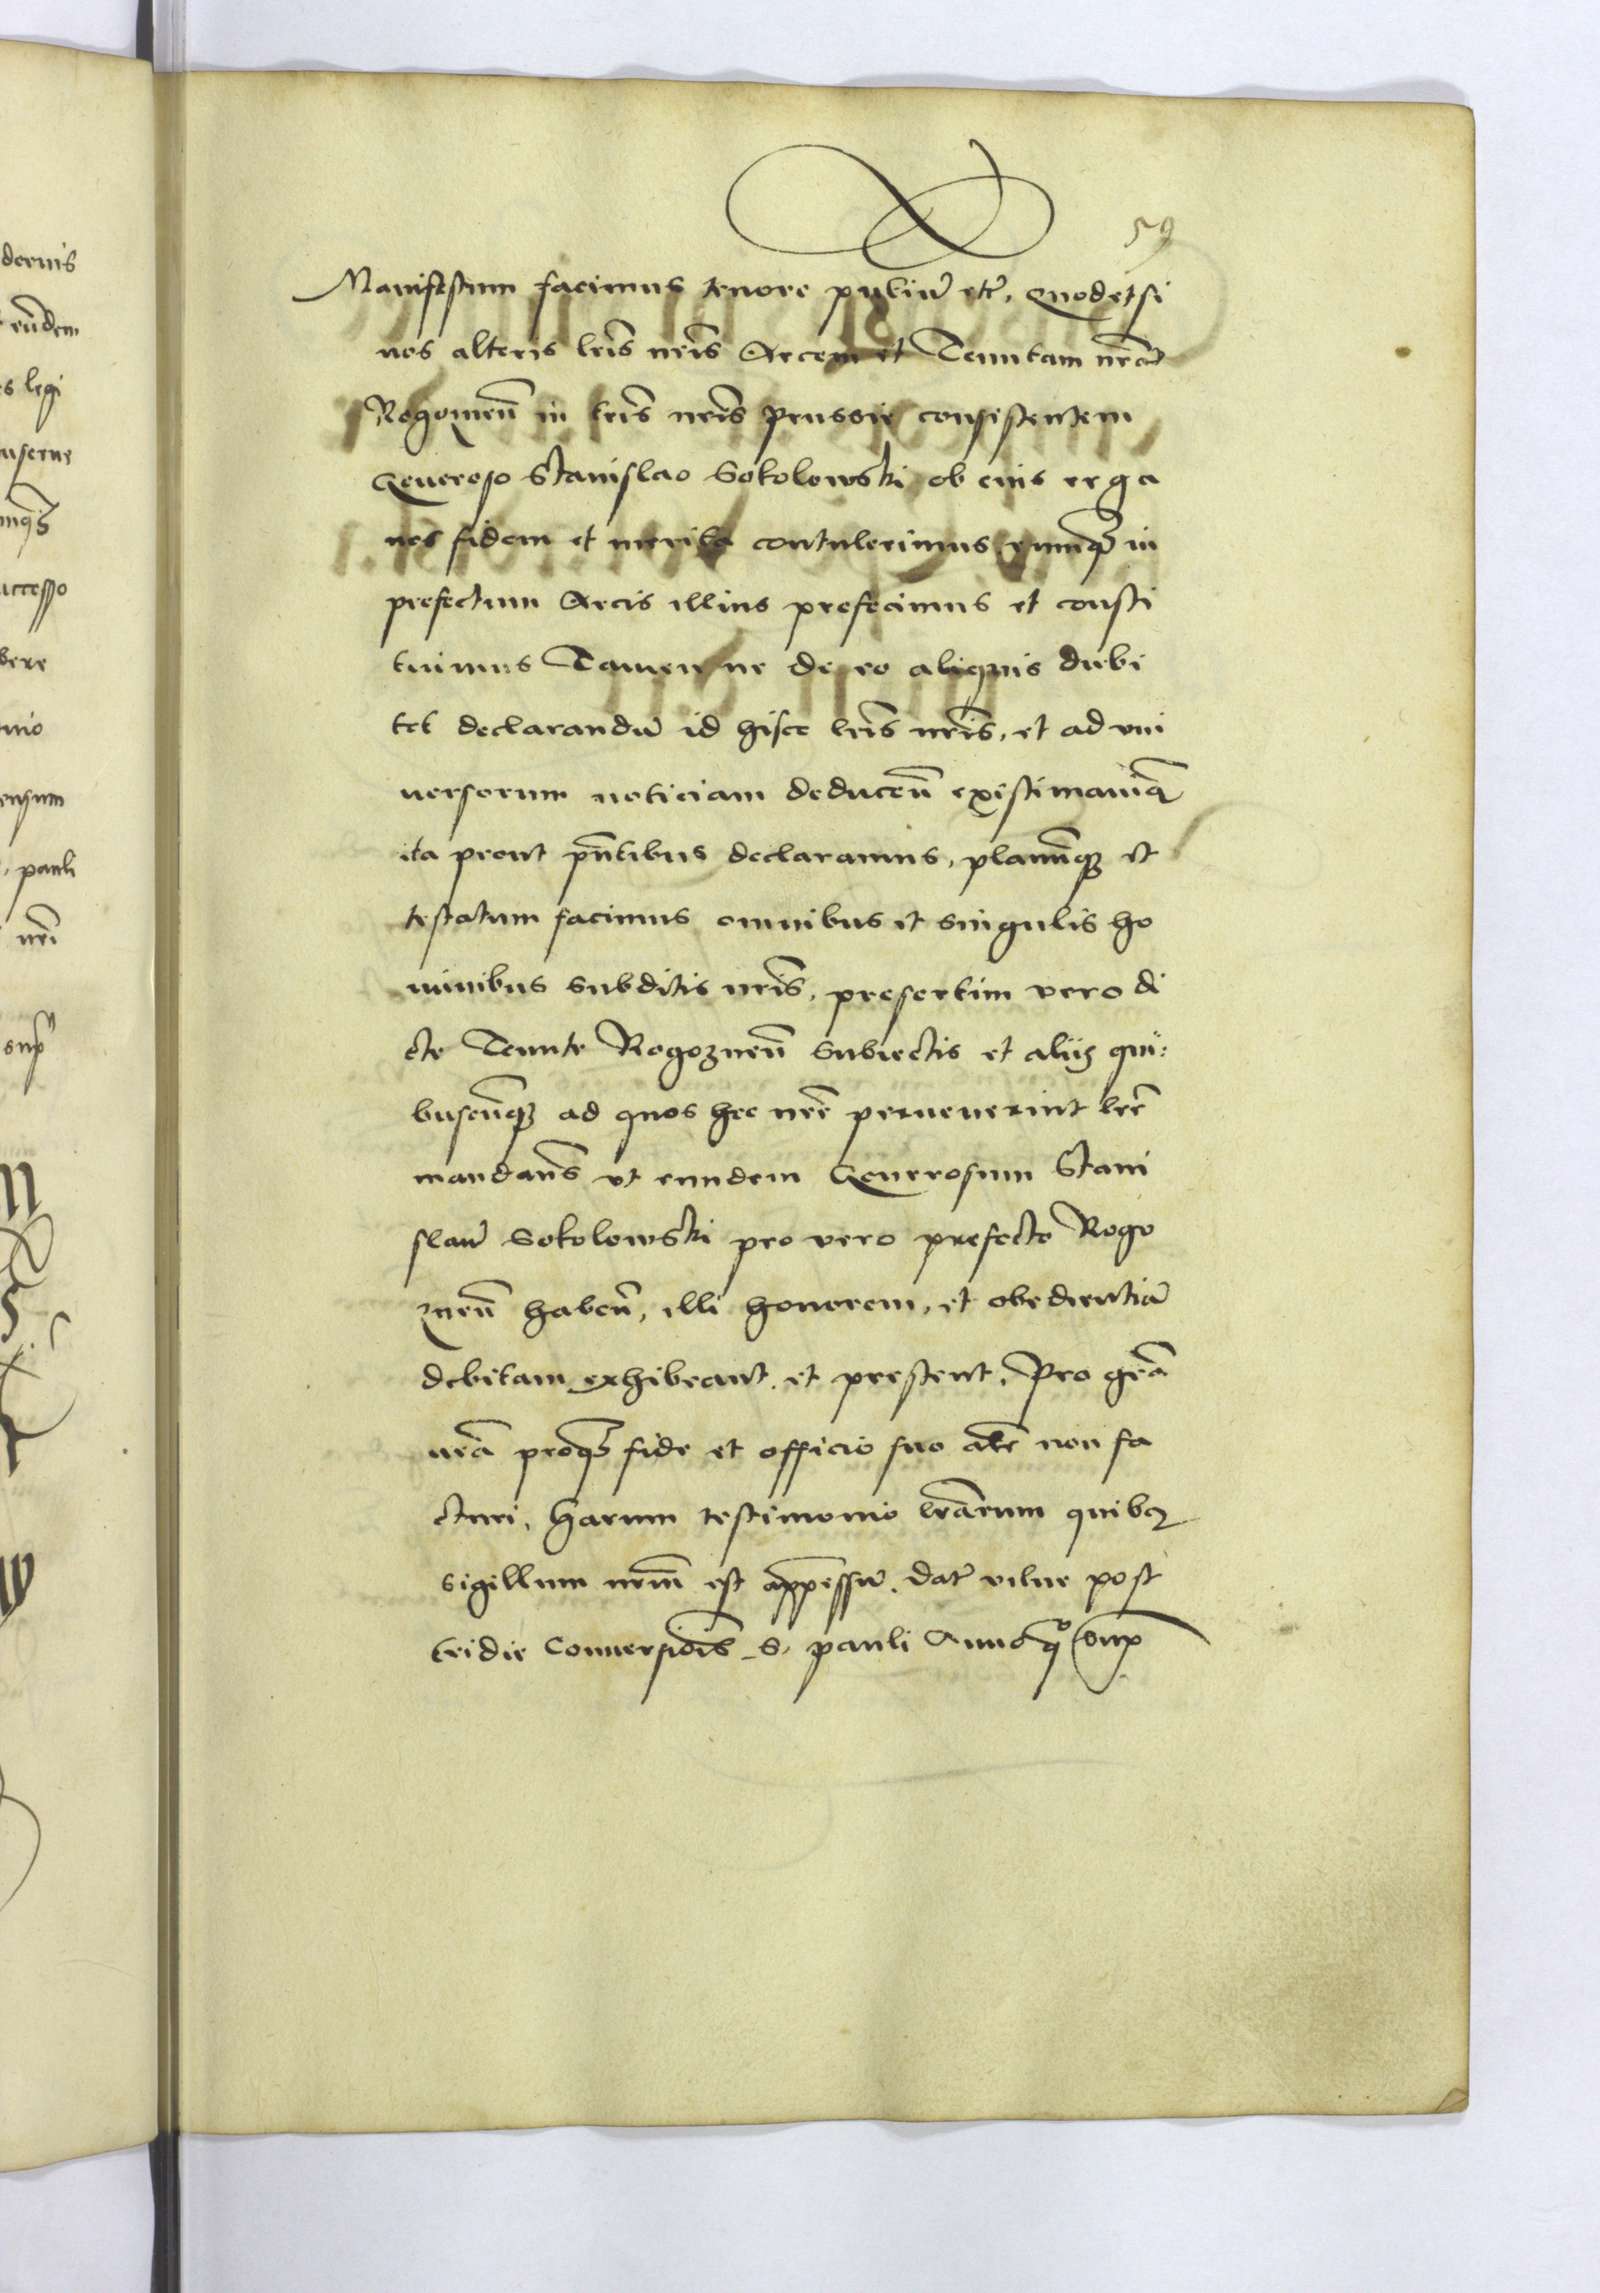 59
Manifestum facimus tenore pntiu etc. Quod etsi
nos alteris lris nris Arcem et Tenutam nram
Rogoznen in tris nris Prussie consistentem
Generoso Stanislao Sokolowski ob eius erga
nos fidem et merita contulerimus eumq in
prefectum Arcis illius prefecimus et consti
tuimus Tamen ne de eo aliquis dubi
tet declarandu id hisce lris nris, et ad vni
uersorum noticiam deducen existimauimq
ita prout pntibus declaramus, planumq et
testatum facimus omnibus et singulis ho
minibus subditis nris, presertim vero di
cte Tenute Rogoznen subiectis et alijs qui:
buscunq ad quos hec nre peruenerint lre
mandans vt eundem Generosum Stani
slau Sokolowski pro vero prefecto Rogo
znen haben, illi honorem, et obedientia
debitam exhibeant et prestent, Pro gra
nra proq fide et officio suo alr non fa
cturi, Harum testimonio lrarum quibq
sigillum nrum est appessu. Dat vilne post
tridie Conuersiois S. Pauli Anno q supr
dernis
eundem
s legi
ccesso
bere
nio
ensum
pauli
nri
supr